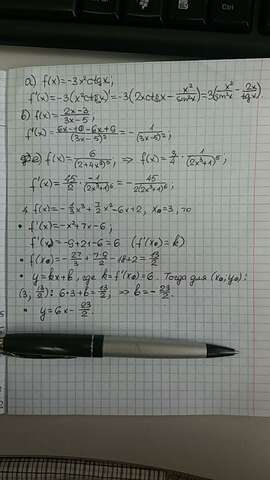 a) f(x)=-3x²ctgx;
f'(x)=-3(x²ctgx)'=-3(2xctgx-x²/sin²x)=3(x²/sin²x-2x/tgx)
б) f(x)=(2x-3)/(3x-5);
f'(x)=(6x-10-6x+9)/(3x-5)²=-1/(3x-5)²;
f(x)=6/(2+4x³)⁵; ⇒ f(x)=3/4·1/(2x³+1)⁵;
4 f(x)=-1/3x³+7/2x²-6x+2, x₀=3, то
• f'(x)=-x²+7x-6;
f'(x₀)=-9+21-6=6 (f'(x₀)=k)
• f(x₀)=-27/3+7·9/2-18+2=13/2
• y=kx+b, где k=f'(x₀)=6. Тогда для (x₀,y₀):
(3; 13/2): 6·3+b=13/2; ⇒ b=-23/2.
• y=6x-23/2